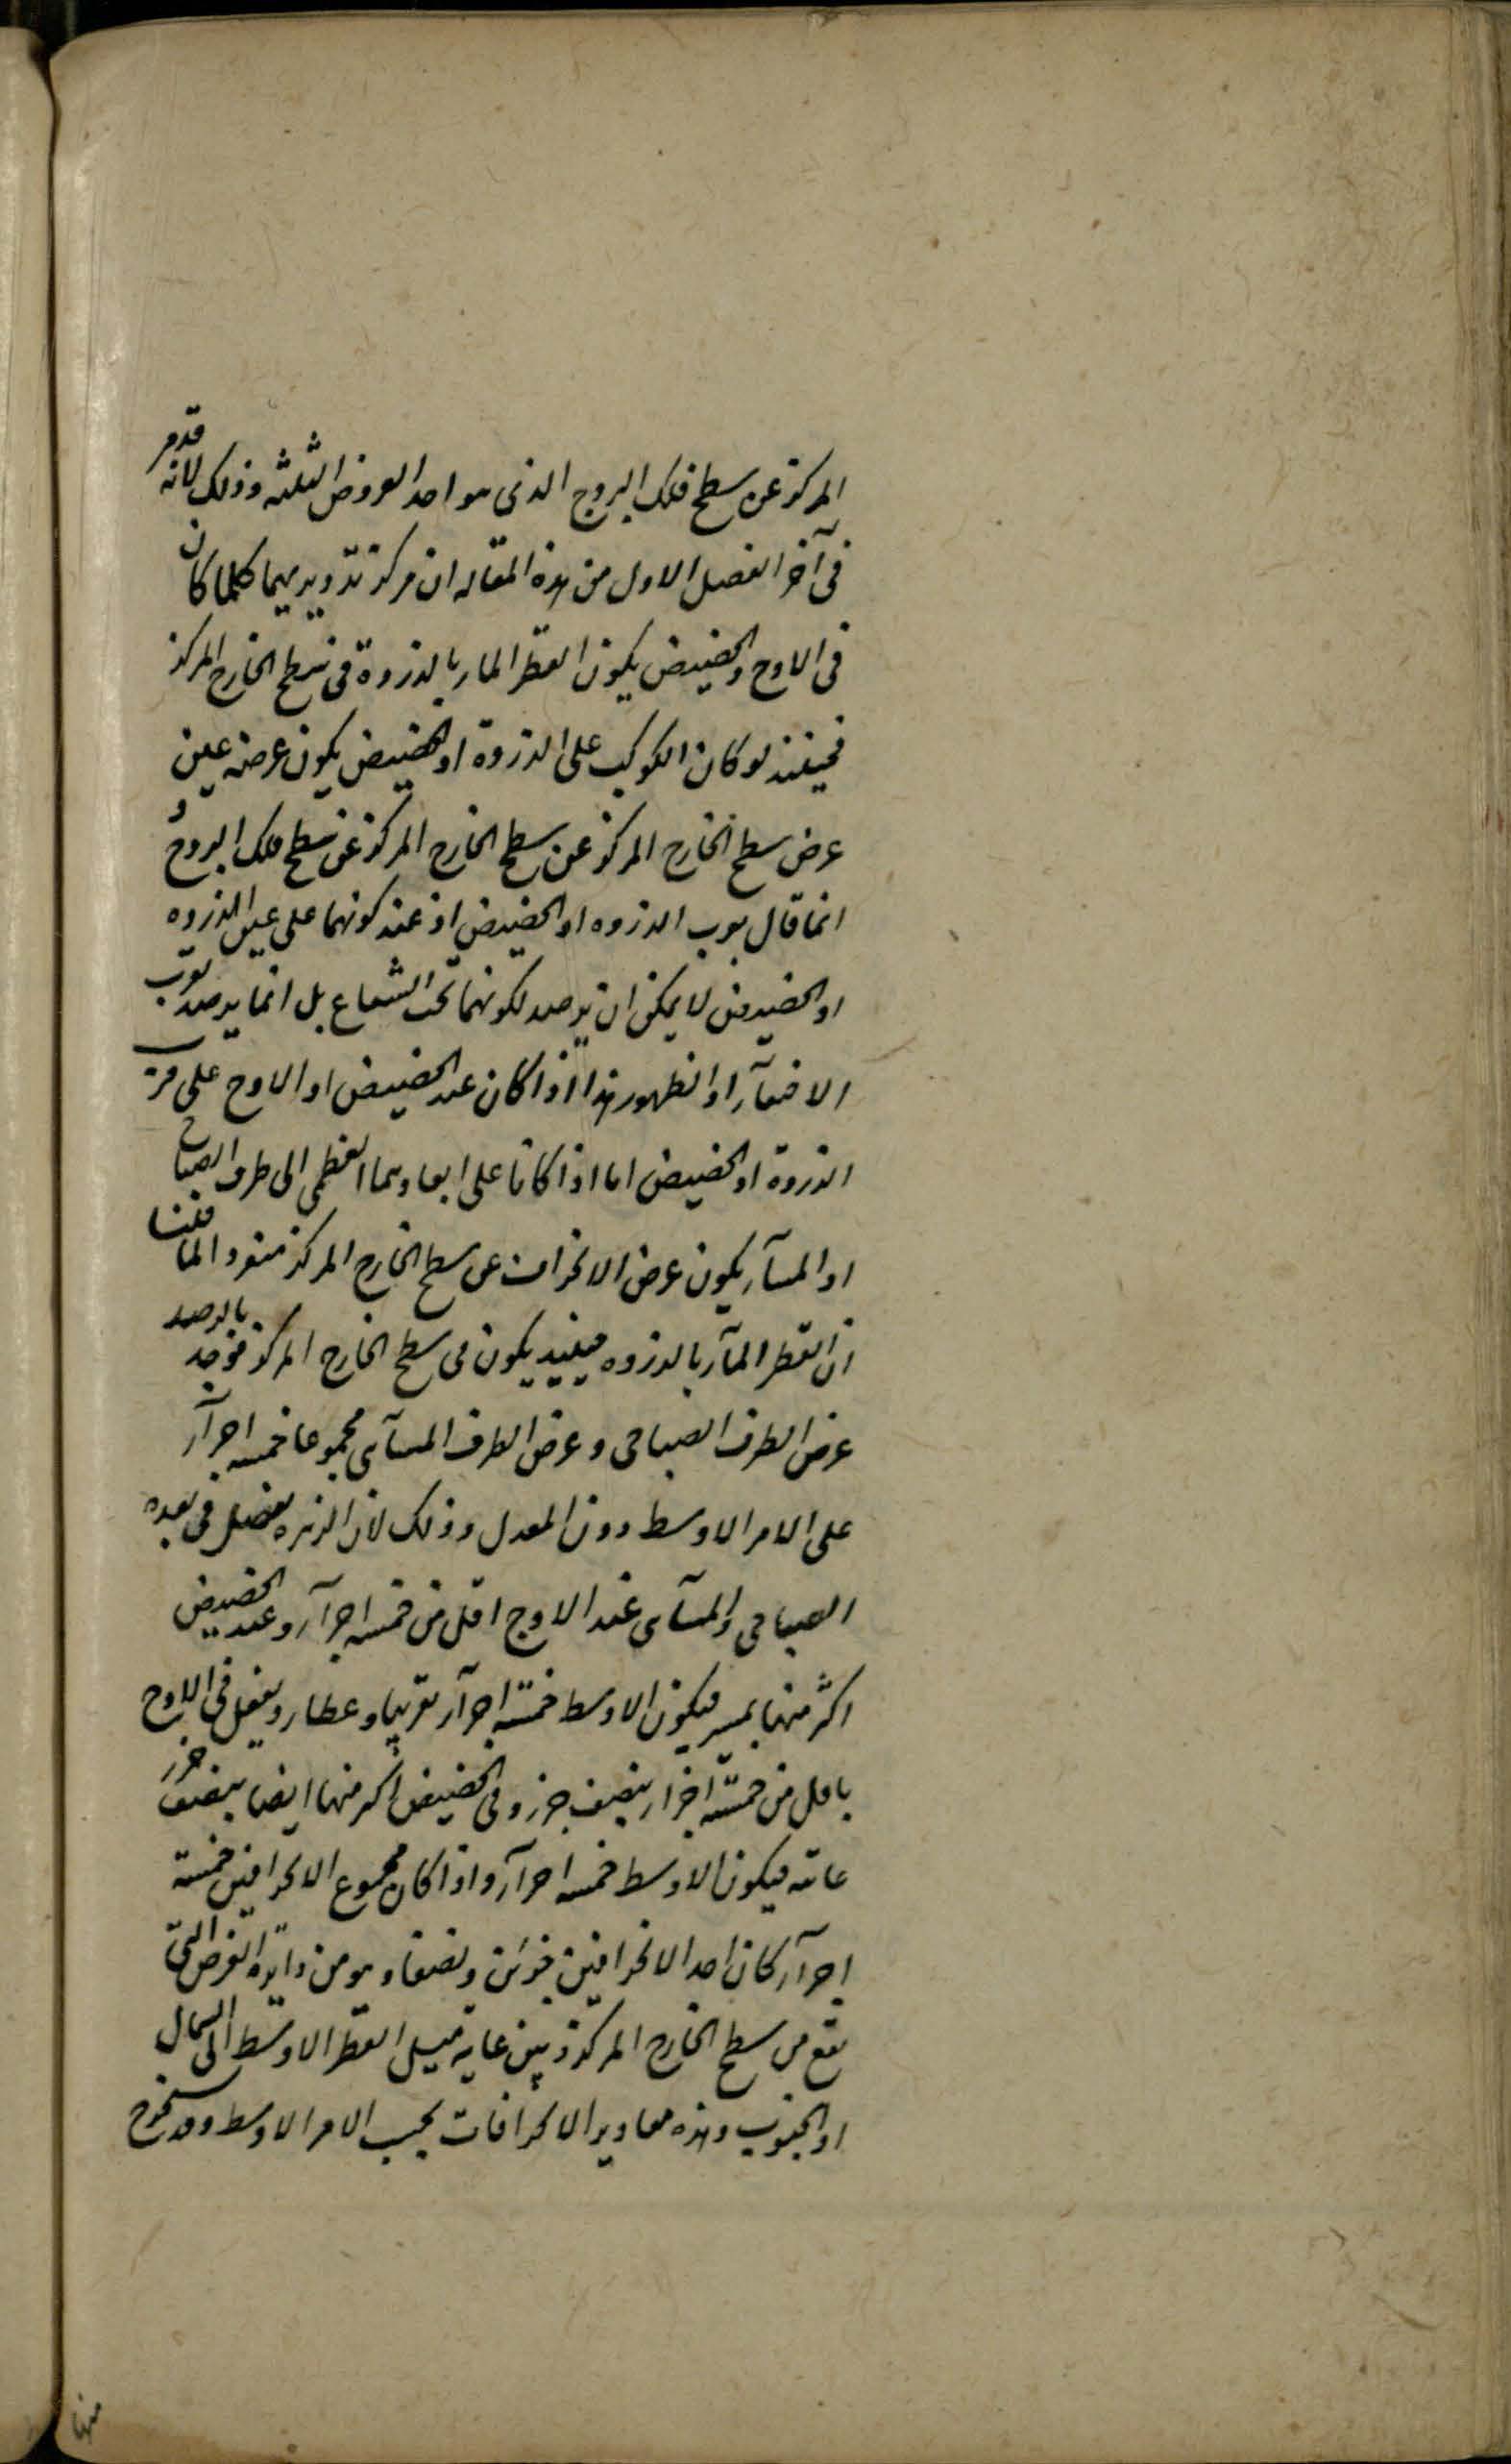 المركز عن سطح فلك البروج الذى هو احد العروض الثلثة وذلك لانه قد مر
فى آخر الفصل الاول من هذه المقاله ان مركز تدويريهما كلما كان
فى الاوج والحضيض يكون القطر المار بالذروة فى سطح الخارج المركز
فحينئذ لو كان الكوكب على الذروة او الحضيض يكون عرضه عين
عرض سطح الخارج المركز عن سطح الخارج المركز عن سطح فلك البروج و
انما قال بقرب الذروه او الحضيض اذ عند كونهما على عين الذروه
او الحضيض لا يمكن ان يرصد لكونهما تحت الشعاع بل انما يرصد بقرب
الاختفآء او الظهور هذا اذا كان عند الحضيض او الاوج على قرب
الذروة او الحضيض اما اذا كانا على ابعادهما العظمى الى طرف الصباح
او المسآء يكون عرض الانحراف عن سطح الخارج المركز منفردا لما قلنا
ان القطر المآر بالذروه حينئيذ يكون فى سطح الخارج المركز فوجد بالرصد
عرض الطرف الصباحى وعرض الطرف المسآى مجموعا خمسه اجزآء
على الامر الاوسط دون المعدل وذلك لان الزهره يفضل فى بعده
الصباحى والمسآى عند الاوج اقل من خمسه اجزآء وعند الحضيض
اكثر منها بيسير فيكون الاوسط خمسة اجزآء تقريبا وعطارد يفضل فى الاوج
باقل من خمسة اجزاء بنصف جزء وفى الحضيض اكثر منها ايضا بنصف جزء
فيكون الاوسط خمسه اجزآء واذا كان مجموع الانحرافين خمسة
اجزآء كان احد الانحرافين جزئين ونصفا وهو من دايرة العرض التى
تقع من سطح الخارج المركز وبين غاية ميل القطر الاوسط الى الشمال
او الجنوب وهذه مقادير الانحرافات بحسب الامر الاوسط وقد يخرج
منها